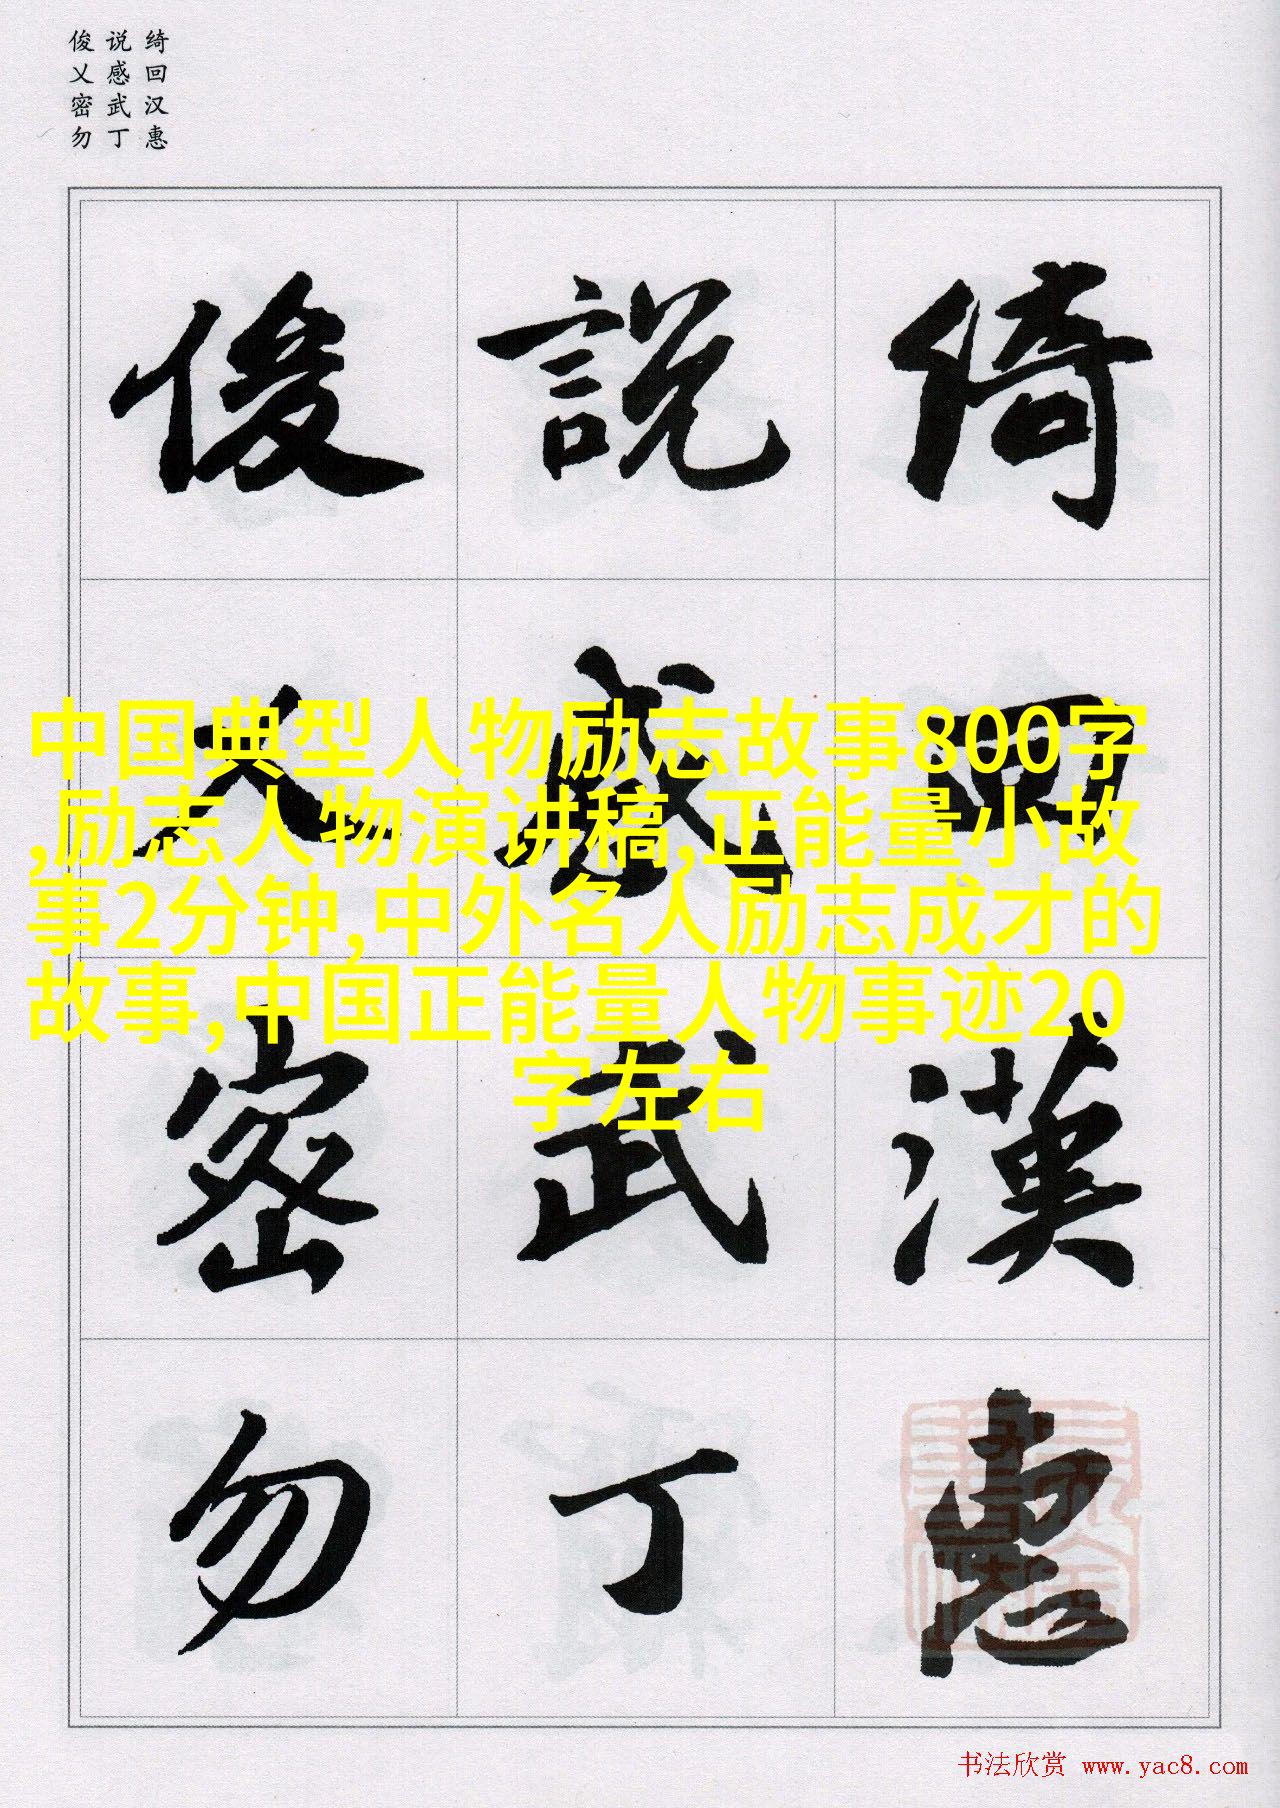 绮回汉惠
说感武丁
俊乂密勿
綺 說 俊
回 感 乂
漢 武 密
惠 丁 勿
中国典型人物励志故事800字
,励志人物演讲稿,正能量小故
事2分钟,中外名人励志成才的
故事,中国正能量人物事迹20
字左右
书法欣赏 www.yac8.com